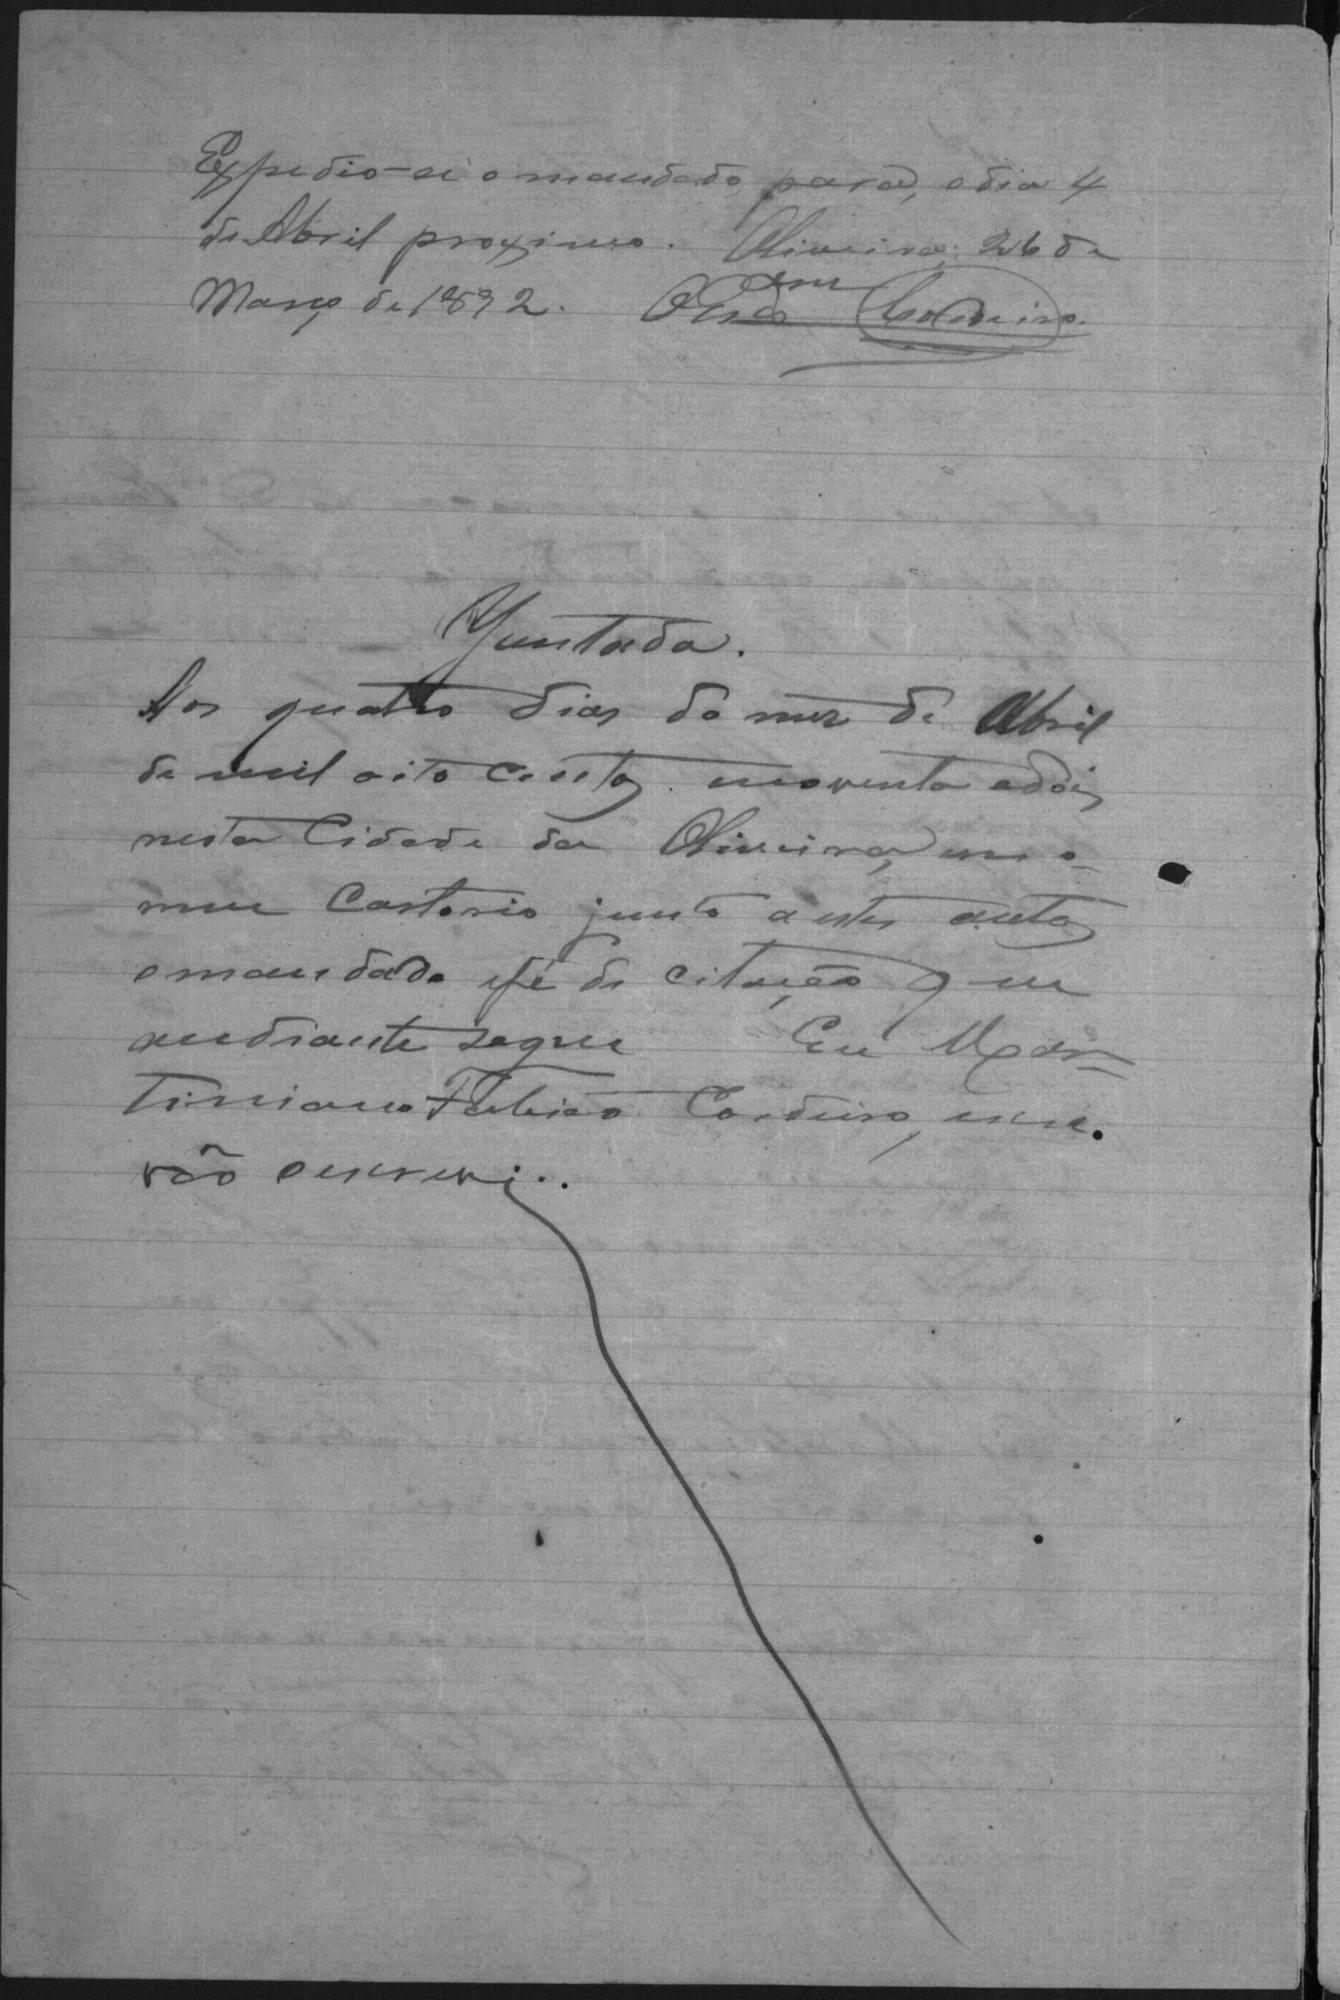 Expedio-se o mandado para, o dia 4
de Abril proximo. Oliveira, 26 de
Março de 1892. O Escram Cordeiro.
Juntada.
Aos quatro dias do mez de Abril
de mil oito centos noventa e dois
nesta Cidade da Oliveira, em o
meu Cartorio junto a estes autos
o mandado e fé de citação que
adiante segue Eu Mar=
timiano Fabião Cordeiro, escri.
vão o escrevi..